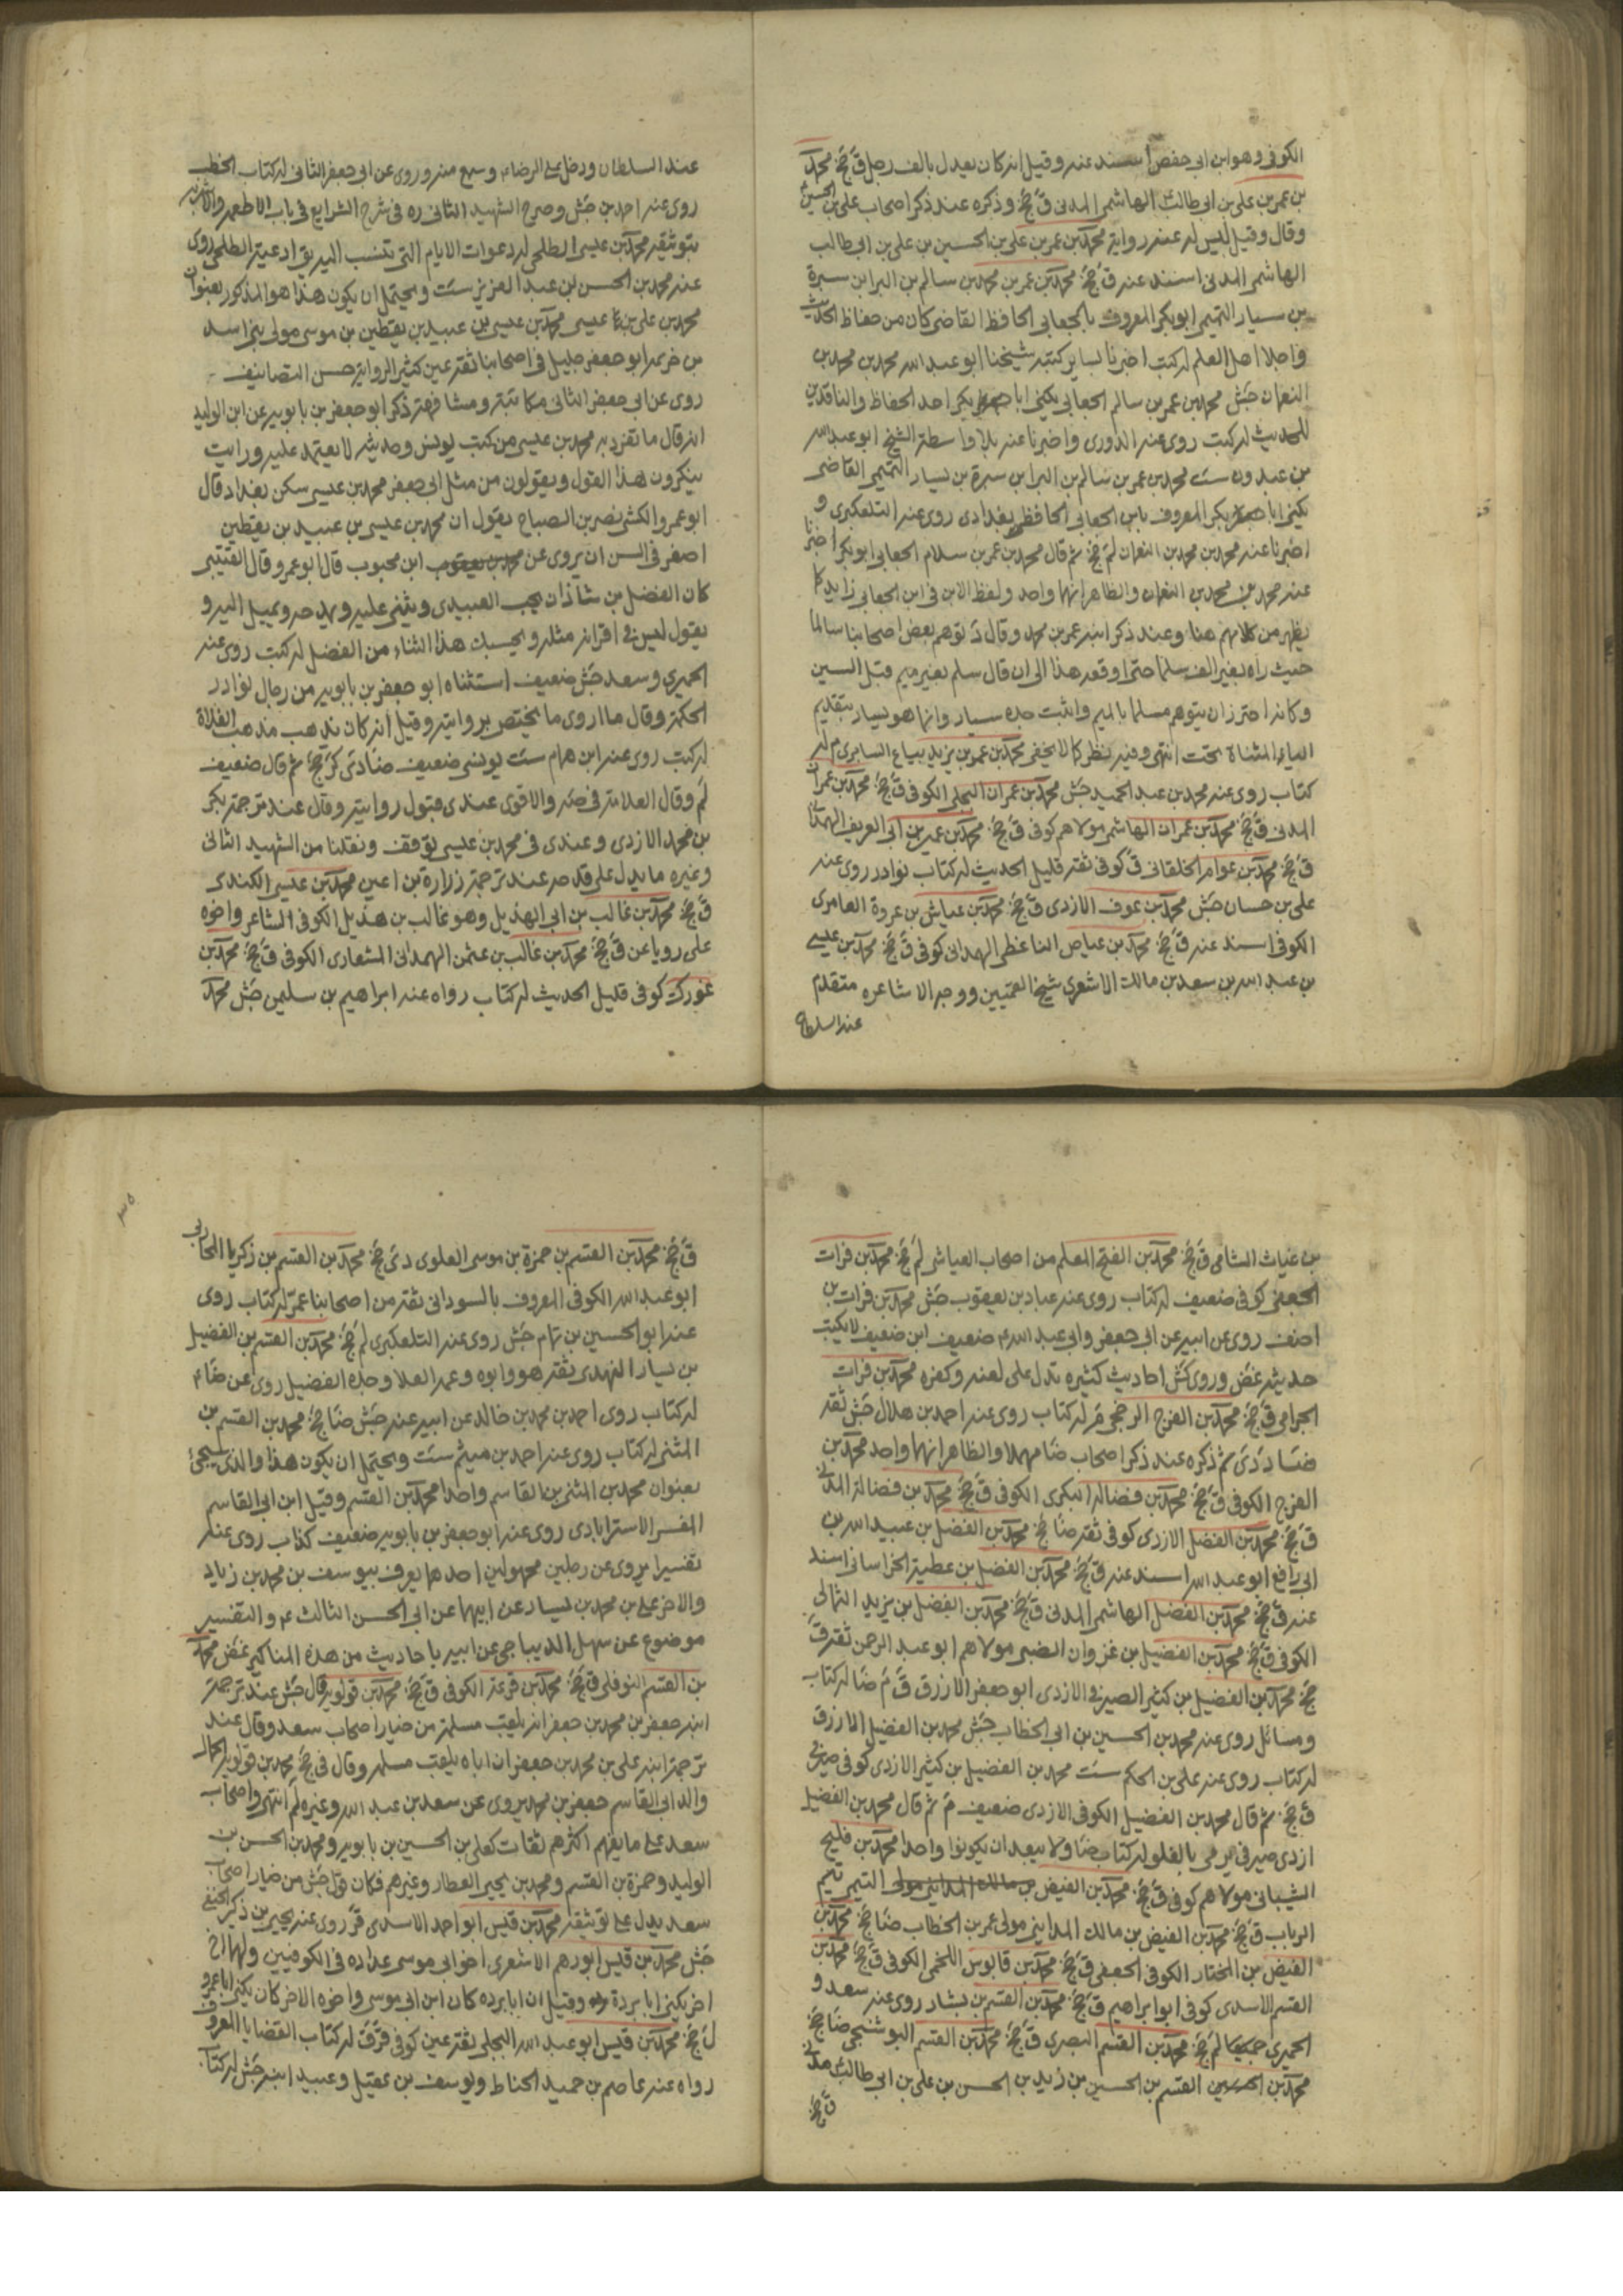 الكوفى وهو ابن ابى حفص اسند عنه وقيل انه كان يعدل بالف رجل ق جخ محمد
بن عمر بن على بن ابى طالب الهاشمى المدنى ق جخ وذكره عند ذكر اصحاب على بن الحسين
وقال وقيل ليس له عنه رواية محمد بن عمر بن على بن الحسين بن على بن ابى طالب
الهاشمى المدنى اسند عنه ق جخ محمد بن عمر بن محمد بن سالم بن البرا ابن سبرة
بن سيار التميمى ابو بكر المعروف بالجعابى الحافظ القاضى كان من حفاظ الحديث
واجلا اهل العلم له كتب اخبرنا بساير كتبه شيخنا ابو عبد الله محمد بن محمد بن
النعمان جش محمد بن عمر بن سالم الجعابى يكنى ابا بكر احد الحفاظ والناقدين
للحديث له كتب روى عنه الدورى واخبرنا عنه بلا واسطة الشيخ ابو عبد الله
بن عبدون ست محمد بن عمر بن سالم بن البرا ابن سبرة بن يسار التميمى القاضى
يكنى ابا بكر المعروف بابن الجعابى الحافظ بغدادى روى عنه التلعكبرى و
اخبرنا عنه محمد بن محمد بن النعمان لم جخ ثم قال محمد بن عمر بن سلام الجعابى ابو بكر اخبرنا
عنه محمد بن محمد بن النعمان والظاهر انهما واحد ولفظ الابن فى ابن الجعابى زايد كما
يظهر من كلامهم هنا وعند ذكر ابنه عمر بن محمد وقال د توهم بعض اصحابنا سالما
حيث راه بغير الف سلما حتى اوقعه هذا الى ان قال سلم بغير ميم قبل السين
وكانه احترز ان يتوهم مسلما بالميم واثبت جده سيار وانما هو يسار بتقديم
الياء المثناة تحت انتهى وفيه نظر كما لا يخفى محمد بن عمر بن يزيد بياع السابرى م له
كتاب روى عنه محمد بن عبد الحميد جش محمد بن عمران البجلى الكوفى ق جخ محمد بن عمران
المدنى ق جخ محمد بن عمران الهاشمى مولاهم كوفى ق جخ محمد بن عمير بن ابى العريف الهمدانى
ق جخ محمد بن عوام الخلقانى ق كوفى ثقة قليل الحديث له كتاب نوادر روى عنه
على بن حسان جش محمد بن عوف الازدى ق جخ محمد بن عياش بن عروة العامرى
الكوفى اسند عنه ق جخ محمد بن عياض الناعظى الهمدانى كوفى ق جخ محمد بن عيسى
بن عبد الله بن سعد بن مالك الاشعرى شيخ القميين ووجه الاشاعره متقدم
عند السلطان
عند السلطان ودخل على الرضا ع وسمع منه وروى عن ابى جعفر الثانى له كتاب الخطب
روى عنه احمد بن جش وصرح الشهيد الثانى ره فى شرح الشرايع فى باب الاطعمة والاشربه
بتوثيقه محمد بن عيسى الطلحى له دعوات الايام التى تنسب اليه يق ادعية الطلحى روى
عنه محمد بن الحسن ابن عبد العزيز ست ويحتمل ان يكون هذا هو المذكور بعنوان
محمد بن على بن عيسى محمد بن عيسى بن عبيد بن يقطين بن موسى مولى بنى اسد
بن خزيمه ابو جعفر جليل فى اصحابنا ثقة عين كثير الرواية حسن التصانيف
روى عن ابى جعفر الثانى مكاتبة ومشافهة ذكر ابو جعفر بن بابويه عن ابن الوليد
انه قال ما تفرد به محمد بن عيسى من كتب يونس وحديثه لا يعتمد عليه ورايت
ينكرون هذا القول ويقولون من مثل ابى جعفر محمد بن عيسى سكن بغداد قال
ابو عمرو الكشى نصر بن الصباح يقول ان محمد بن عيسى بن عبيد بن يقطين
اصغر فى السن ان يروى عن ابن محبوب قال ابو عمرو قال القتيبى
كان الفضل بن شاذان يحب العبيدى ويثنى عليه ويمدحه ويميل اليه و
يقول ليس فى اقرانه مثله وبحسبك هذا الثناء من الفضل له كتب روى عنه
الحميرى وسعد جش ضعيف استثناه ابو جعفر بن بابويه من رجال نوادر
الحكمة وقال ما اروى ما يختص بروايته وقيل انه كان يذهب مذهب الغلاة
له كتب روى عنه ابن همام ست يونسى ضعيف ضا دى كر جخ ثم قال ضعيف
لم وقال العلامة فى صه والاقوى عندى قبول روايته وقال عند ترجمة بكر
بن محمد الازدى وعندى فى محمد بن عيسى توقف ونقلنا من الشهيد الثانى
وغيره ما يدل على قدحه عند ترجمة زرارة بن اعين محمد بن عيسى الكندى
ق جخ محمد بن غالب بن ابى الهذيل وهو غالب بن هذيل الكوفى الشاعر واخوه
على رويا عن ق جخ محمد بن غالب بن عثمن الهمدانى المشعارى الكوفى ق جخ محمد بن
غورك كوفى قليل الحديث له كتاب رواه عنه ابراهيم بن سليمن جش محمد
بن غياث الشامى ق جخ محمد بن الفتح المعلم من اصحاب العياشى لم جخ محمد بن فرات
الجعفى كوفى ضعيف له كتاب روى عنه عباد بن يعقوب جش محمد بن فرات بن
احنف روى عن ابيه عن ابى جعفر وابى عبد الله ع ضعيف ابن ضعيف لا يكتب
حديثه غض وروى كش احاديث كثيره تدل على لعنه وكفره محمد بن فرات
الجرامى ق جخ محمد بن الفرج الرخجى م له كتاب روى عنه احمد بن هلال جش ثقة
ضا د دى ثم ذكره عند ذكر اصحاب ضا مهملا والظاهر انهما واحد محمد بن
الفرج الكوفى ق جخ محمد بن فضالة البكرى الكوفى ق جخ محمد بن فضالة المدنى
ق جخ محمد بن الفضل الازدى كوفى ثقة ضا جخ محمد بن الفضل بن عبيد الله بن
ابى رافع ابو عبد الله اسند عنه ق جخ محمد بن الفضل بن عطية الخراسانى اسند
عنه ق جخ محمد بن الفضل الهاشمى المدنى ق جخ محمد بن الفضل بن يزيد الثمالى
الكوفى ق جخ محمد بن الفضيل بن غزوان الضبى مولاهم ابو عبد الرحمن ثقة ق
جخ محمد بن الفضيل بن كثير الصيرفى الازدى ابو جعفر الازرق ق م ضا له كتاب
ومسائل روى عنه محمد بن الحسين بن ابى الخطاب جش محمد بن الفضيل الازرق
له كتاب روى عنه على بن الحكم ست محمد بن الفضيل بن كثير الازدى كوفى صيرفى
ق جخ ثم قال محمد بن الفضيل الكوفى الازدى ضعيف م ثم قال محمد بن الفضيل
ازدى صيرفى يرمى بالغلو له كتاب ضا ولا يبعد ان يكونوا واحدا محمد بن فليح
الشيبانى مولاهم كوفى ق جخ محمد بن الفيض بن مالك المداينى مولى التيمى تيم
الرباب ق جخ محمد بن الفيض بن مالك المداينى مولى عمر بن الخطاب ضا جخ محمد بن
الفيض بن المختار الكوفى الجعفى ق جخ محمد بن قابوس اللخمى الكوفى ق جخ محمد بن
القسم الاسدى كوفى ابو ابراهيم ق جخ محمد بن القسم بن بشار روى عنه سعد و
الحميرى جميعا لم جخ محمد بن القسم البصرى ق جخ محمد بن القسم البوشنجى ضا جخ
محمد بن القسم بن الحسين بن زيد بن الحسن بن على بن ابى طالب مدنى
ق جخ
ق جخ محمد بن القسم بن حمزة بن موسى العلوى دى جخ محمد بن القسم بن زكريا المحاربى
ابو عبد الله الكوفى المعروف بالسودانى ثقة من اصحابنا عمر له كتاب روى
عنه ابو الحسين بن تمام جش روى عنه التلعكبرى لم جخ محمد بن القسم بن الفضيل
بن يسار النهدى ثقة هو وابوه وعمه العلا وجده الفضيل روى عن ضا ع
له كتاب روى احمد بن محمد بن خالد عن ابيه عنه جش ضا جخ محمد بن القسم بن
المثنى له كتاب روى عنه احمد بن ميثم ست ويحتمل ان يكون هذا والذى سيجئ
بعنوان محمد بن المثنى بن القاسم واحدا محمد بن القسم وقيل ابن ابى القاسم
المفسر الاسترابادى روى عنه ابو جعفر بن بابويه ضعيف كذاب روى عنه
تفسيرا يروى عن رجلين مجهولين احدهما يعرف بيوسف بن محمد بن زياد
والاخر على بن محمد بن يسار عن ابيهما عن ابى الحسن الثالث ع والتفسير
موضوع عن سهل الديباجى عن ابيه باحاديث من هذه المناكير غض محمد
بن القسم النوفلى ق جخ محمد بن قرعة الكوفى ق جخ محمد بن قولويه قال جش عند ترجمة
ابنه جعفر بن محمد بن جعفر انه يلقب مسلمة من خيار اصحاب سعد وقال عند
ترجمة ابنه على بن محمد بن جعفر ان اباه يلقب مسلمه وقال فى جخ محمد بن قولويه الجمال
والد ابى القاسم جعفر بن محمد يروى عن سعد بن عبد الله وغيره لم انتهى واصحاب
سعد على ما يفهم اكثرهم ثقات كعلى بن الحسين بن بابويه ومحمد بن الحسن بن
الوليد وحمزة بن القسم ومحمد بن يحيى العطار وغيرهم فكان قول جش من خيار اصحاب
سعد يدل على توثيقه محمد بن قيس ابو احمد الاسدى ق روى عنه يحيى بن زكريا الحنفى
جش محمد بن قيس ابو رهم الاشعرى اخو ابى موسى عداده فى الكوفيين ولهما اخ
اخر يكنى ابا بردة وقيل ان ابا برده كان ابن ابى موسى واخوه الاخر كان يكنى ابا عمرو
ل جخ محمد بن قيس ابو عبد الله البجلى ثقة عين كوفى قر ق له كتاب القضايا المعروف
رواه عنه عاصم بن حميد الحناط ويوسف بن عقيل وعبيد ابنه جش له كتاب